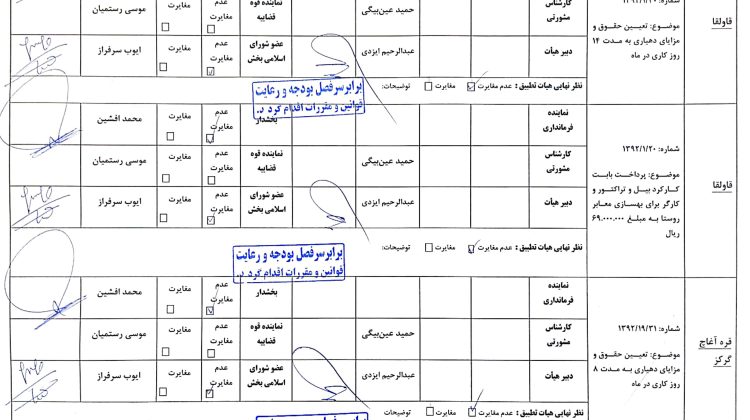 قاولقا
موضوع: تعیین حقوق و
مزایای دهیاری به مدت ۱۴
روز کاری در ماه
کارشناس
مشورتی
حمید عین‌بیگی
نماینده قوه
قضاییه
عدم
مغایرت
مغایرت
موسی رستمیان
دبیر هیأت
عبدالرحیم ایزدی
عضو شورای
اسلامی بخش
عدم
مغایرت
مغایرت
ایوب سرفراز
نظر نهایی هیات تطبیق : عدم مغایرت مغایرت توضیحات:
برابر سرفصل بودجه و رعایت
قوانین و مقررات اقدام گردد.
قاولقا
شماره: ۱۳۹۲/۱/۲۰
موضوع: پرداخت بابت
کارکرد بیل و تراکتور و
کارگر برای بهسازی معابر
روستا به مبلغ ۶۹.۰۰۰.۰۰۰
ریال
نماینده
فرمانداری
بخشدار
عدم
مغایرت
مغایرت
محمد افشین
کارشناس
مشورتی
حمید عین‌بیگی
نماینده قوه
قضاییه
عدم
مغایرت
مغایرت
موسی رستمیان
دبیر هیأت
عبدالرحیم ایزدی
عضو شورای
اسلامی بخش
عدم
مغایرت
مغایرت
ایوب سرفراز
نظر نهایی هیات تطبیق : عدم مغایرت مغایرت توضیحات:
برابر سرفصل بودجه و رعایت
قوانین و مقررات اقدام گردد.
قره آغاج
گرکز
شماره: ۱۳۹۲/۱۹/۳۱
موضوع: تعیین حقوق و
مزایای دهیاری به مدت ۸
روز کاری در ماه
نماینده
فرمانداری
بخشدار
عدم
مغایرت
مغایرت
محمد افشین
کارشناس
مشورتی
حمید عین‌بیگی
نماینده قوه
قضاییه
عدم
مغایرت
مغایرت
موسی رستمیان
دبیر هیأت
عبدالرحیم ایزدی
عضو شورای
اسلامی بخش
عدم
مغایرت
مغایرت
ایوب سرفراز
نظر نهایی هیات تطبیق : عدم مغایرت مغایرت توضیحات: